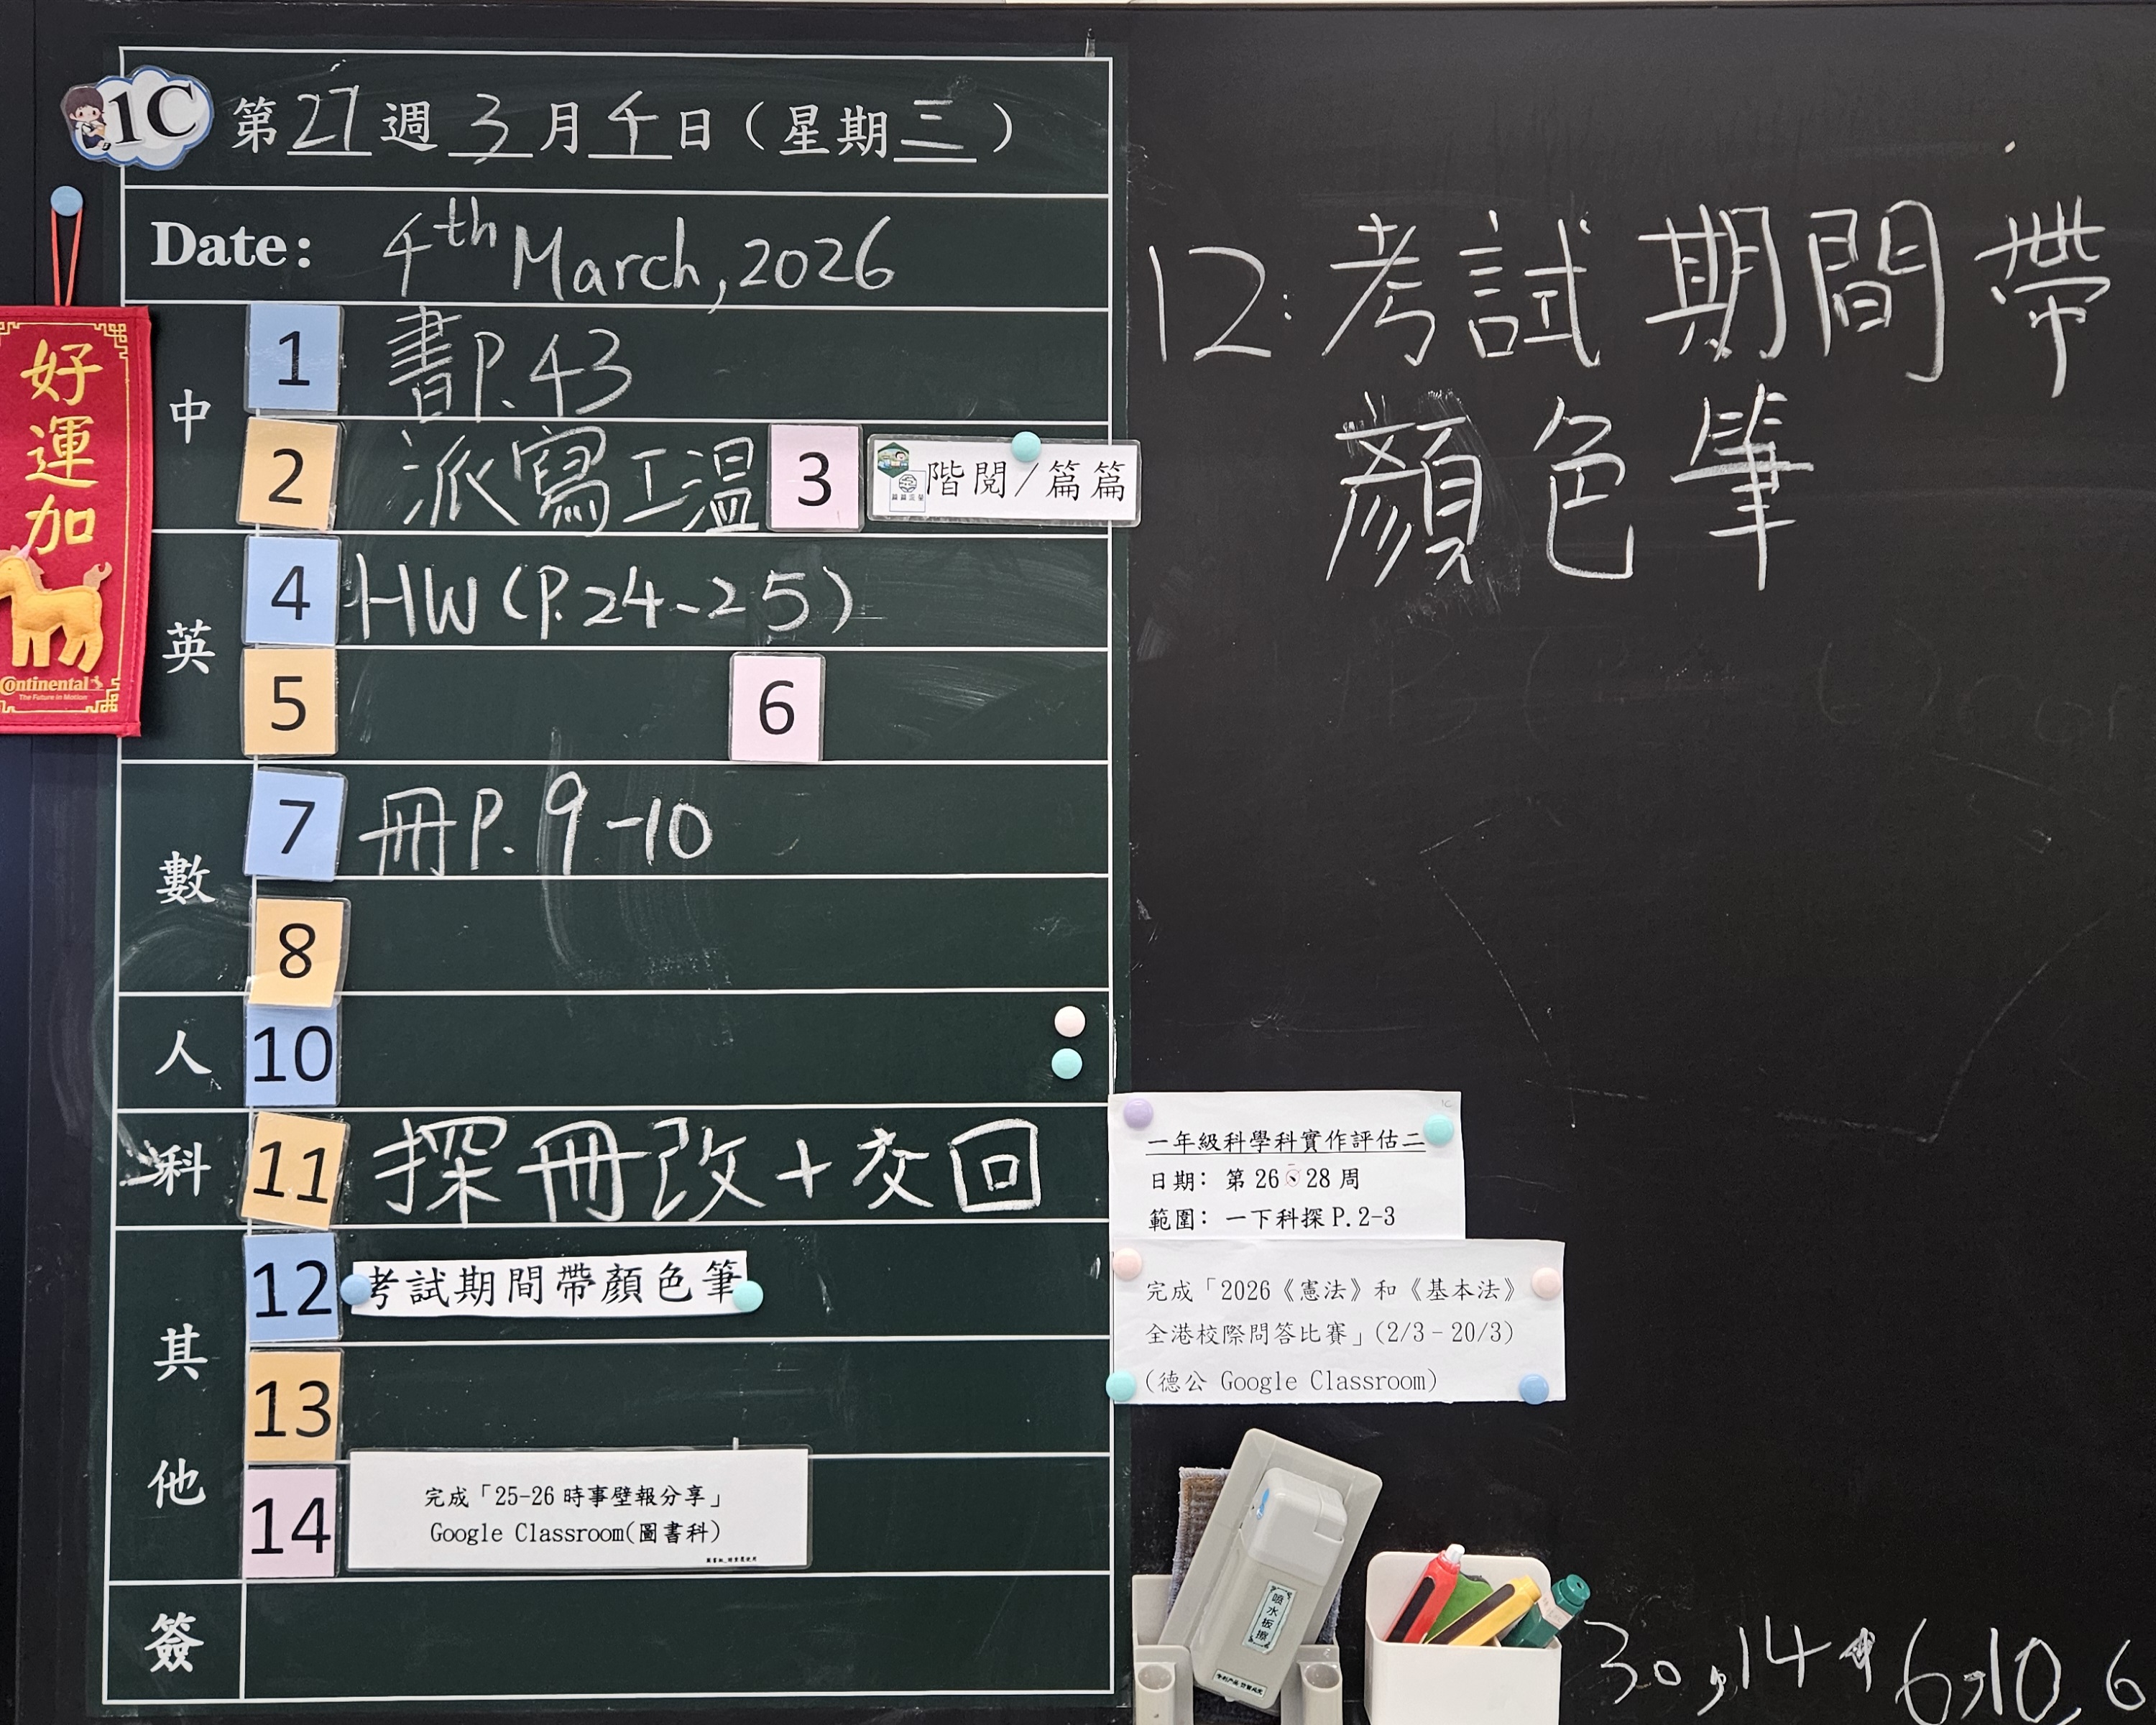 1C 第27週3月4日（星期三）
Date: 4th March, 2026
中
1 書P.43
2 派寫工温 3 階閱/篇篇
英
4 HW(P.24-25)
5 6
數
7 冊P.9-10
8
人 10
科 11 探冊改+交回
其他
12 考試期間帶顏色筆
13
14 完成「25-26 時事壁報分享」
Google Classroom(圖書科)
簽
好運加
Continental
The Future in Motion
12:考試期間帶
顏色筆
一年級科學科實作評估二
日期: 第26、28周
範圍: 一下科探P.2-3
完成「2026《憲法》和《基本法》
全港校際問答比賽」(2/3-20/3)
(德公 Google Classroom)
噴水板擦
30,14
6,10,6